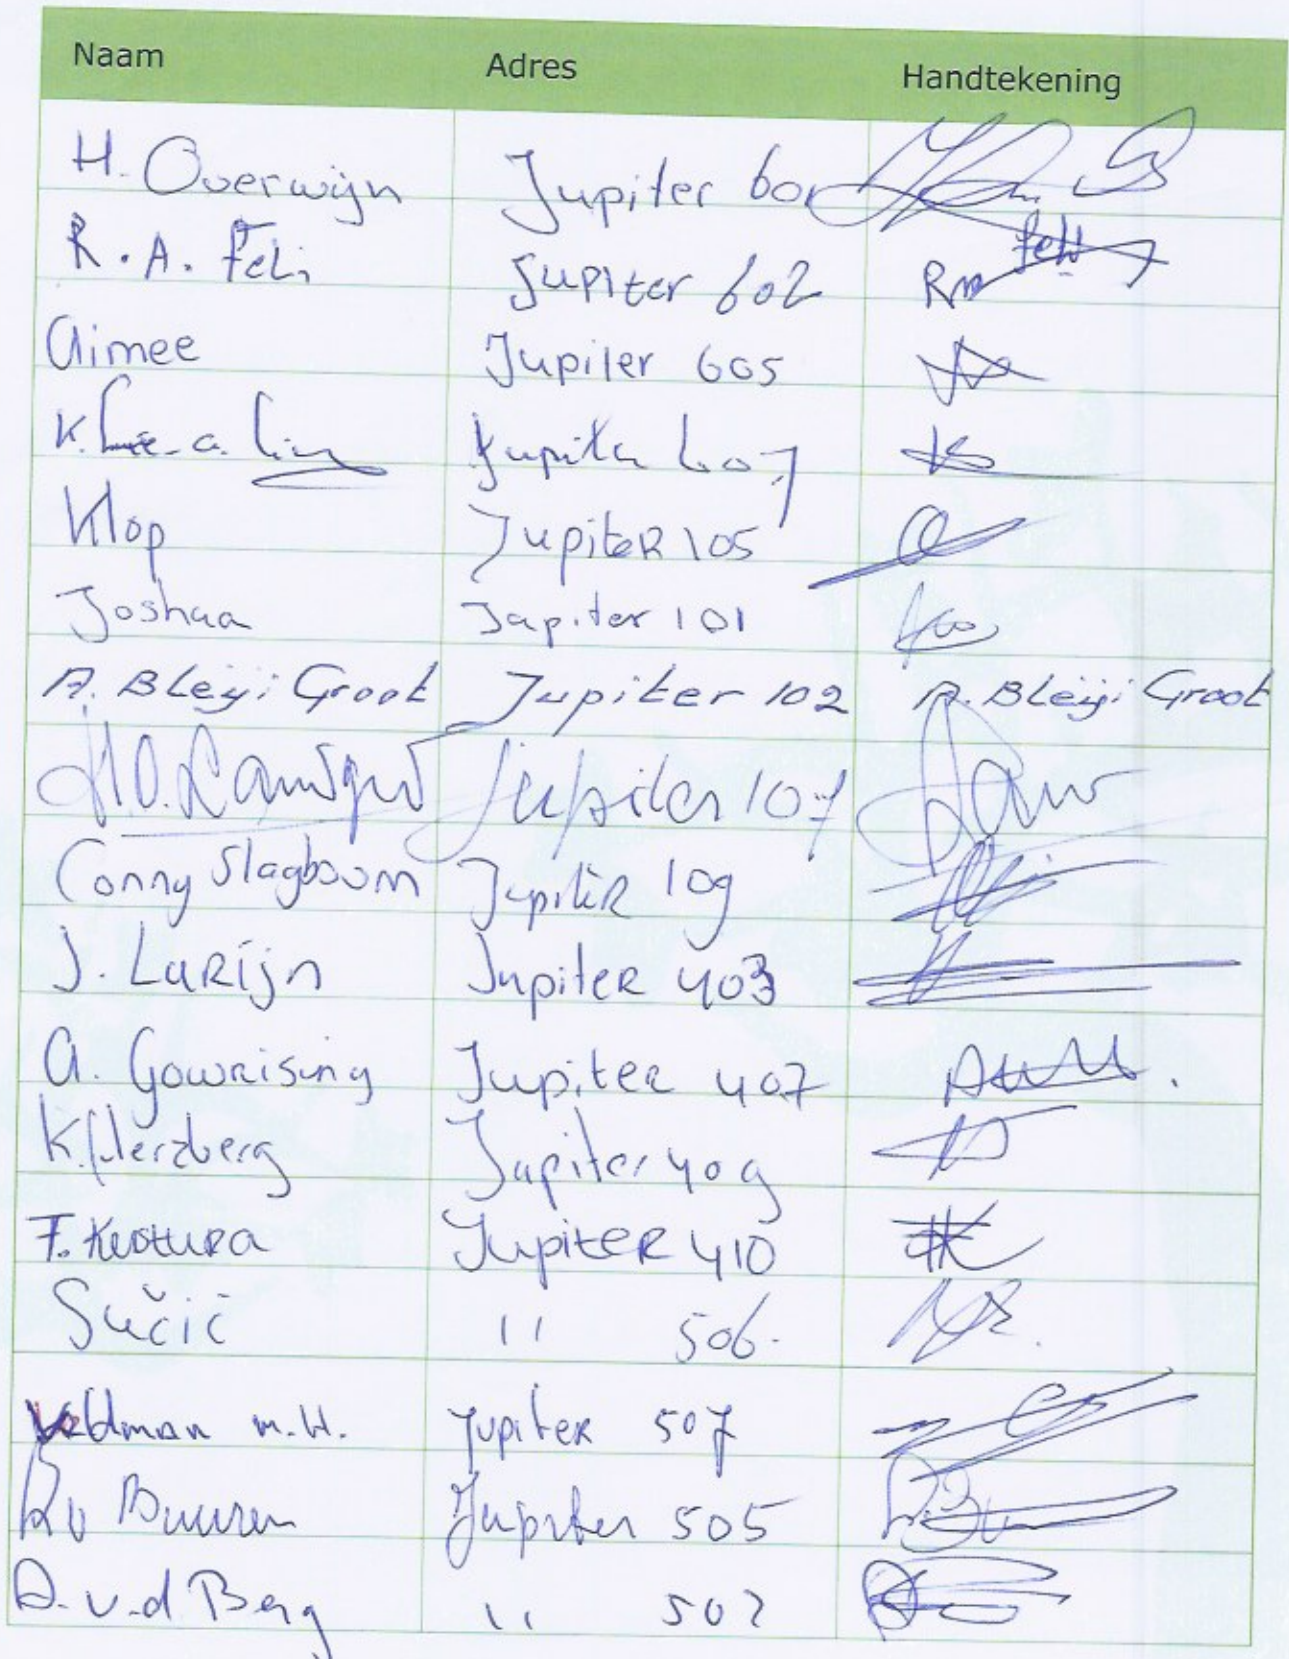 Naam Adres Handtekening
H. Overwijn Jupiter 601
R. A. Feli Jupiter 602
Aimee Jupiter 605
K. Jupiter 607
Klop JupiteR 105
Joshua Jupiter 101
A. Bleiji Groot Jupiter 102 A. Bleiji Groot
Jupiter 107
Conny Slagboom JupiteR 109
J. LuRijn JupiteR 403
A. GowRising JupiteR 407
K. Herzberg Jupiter 409
F. JupiteR 410
Sučić " 506.
Veldman m.H. Jupiter 507
R v Buuren Jupiter 505
A. v.d Berg " 502